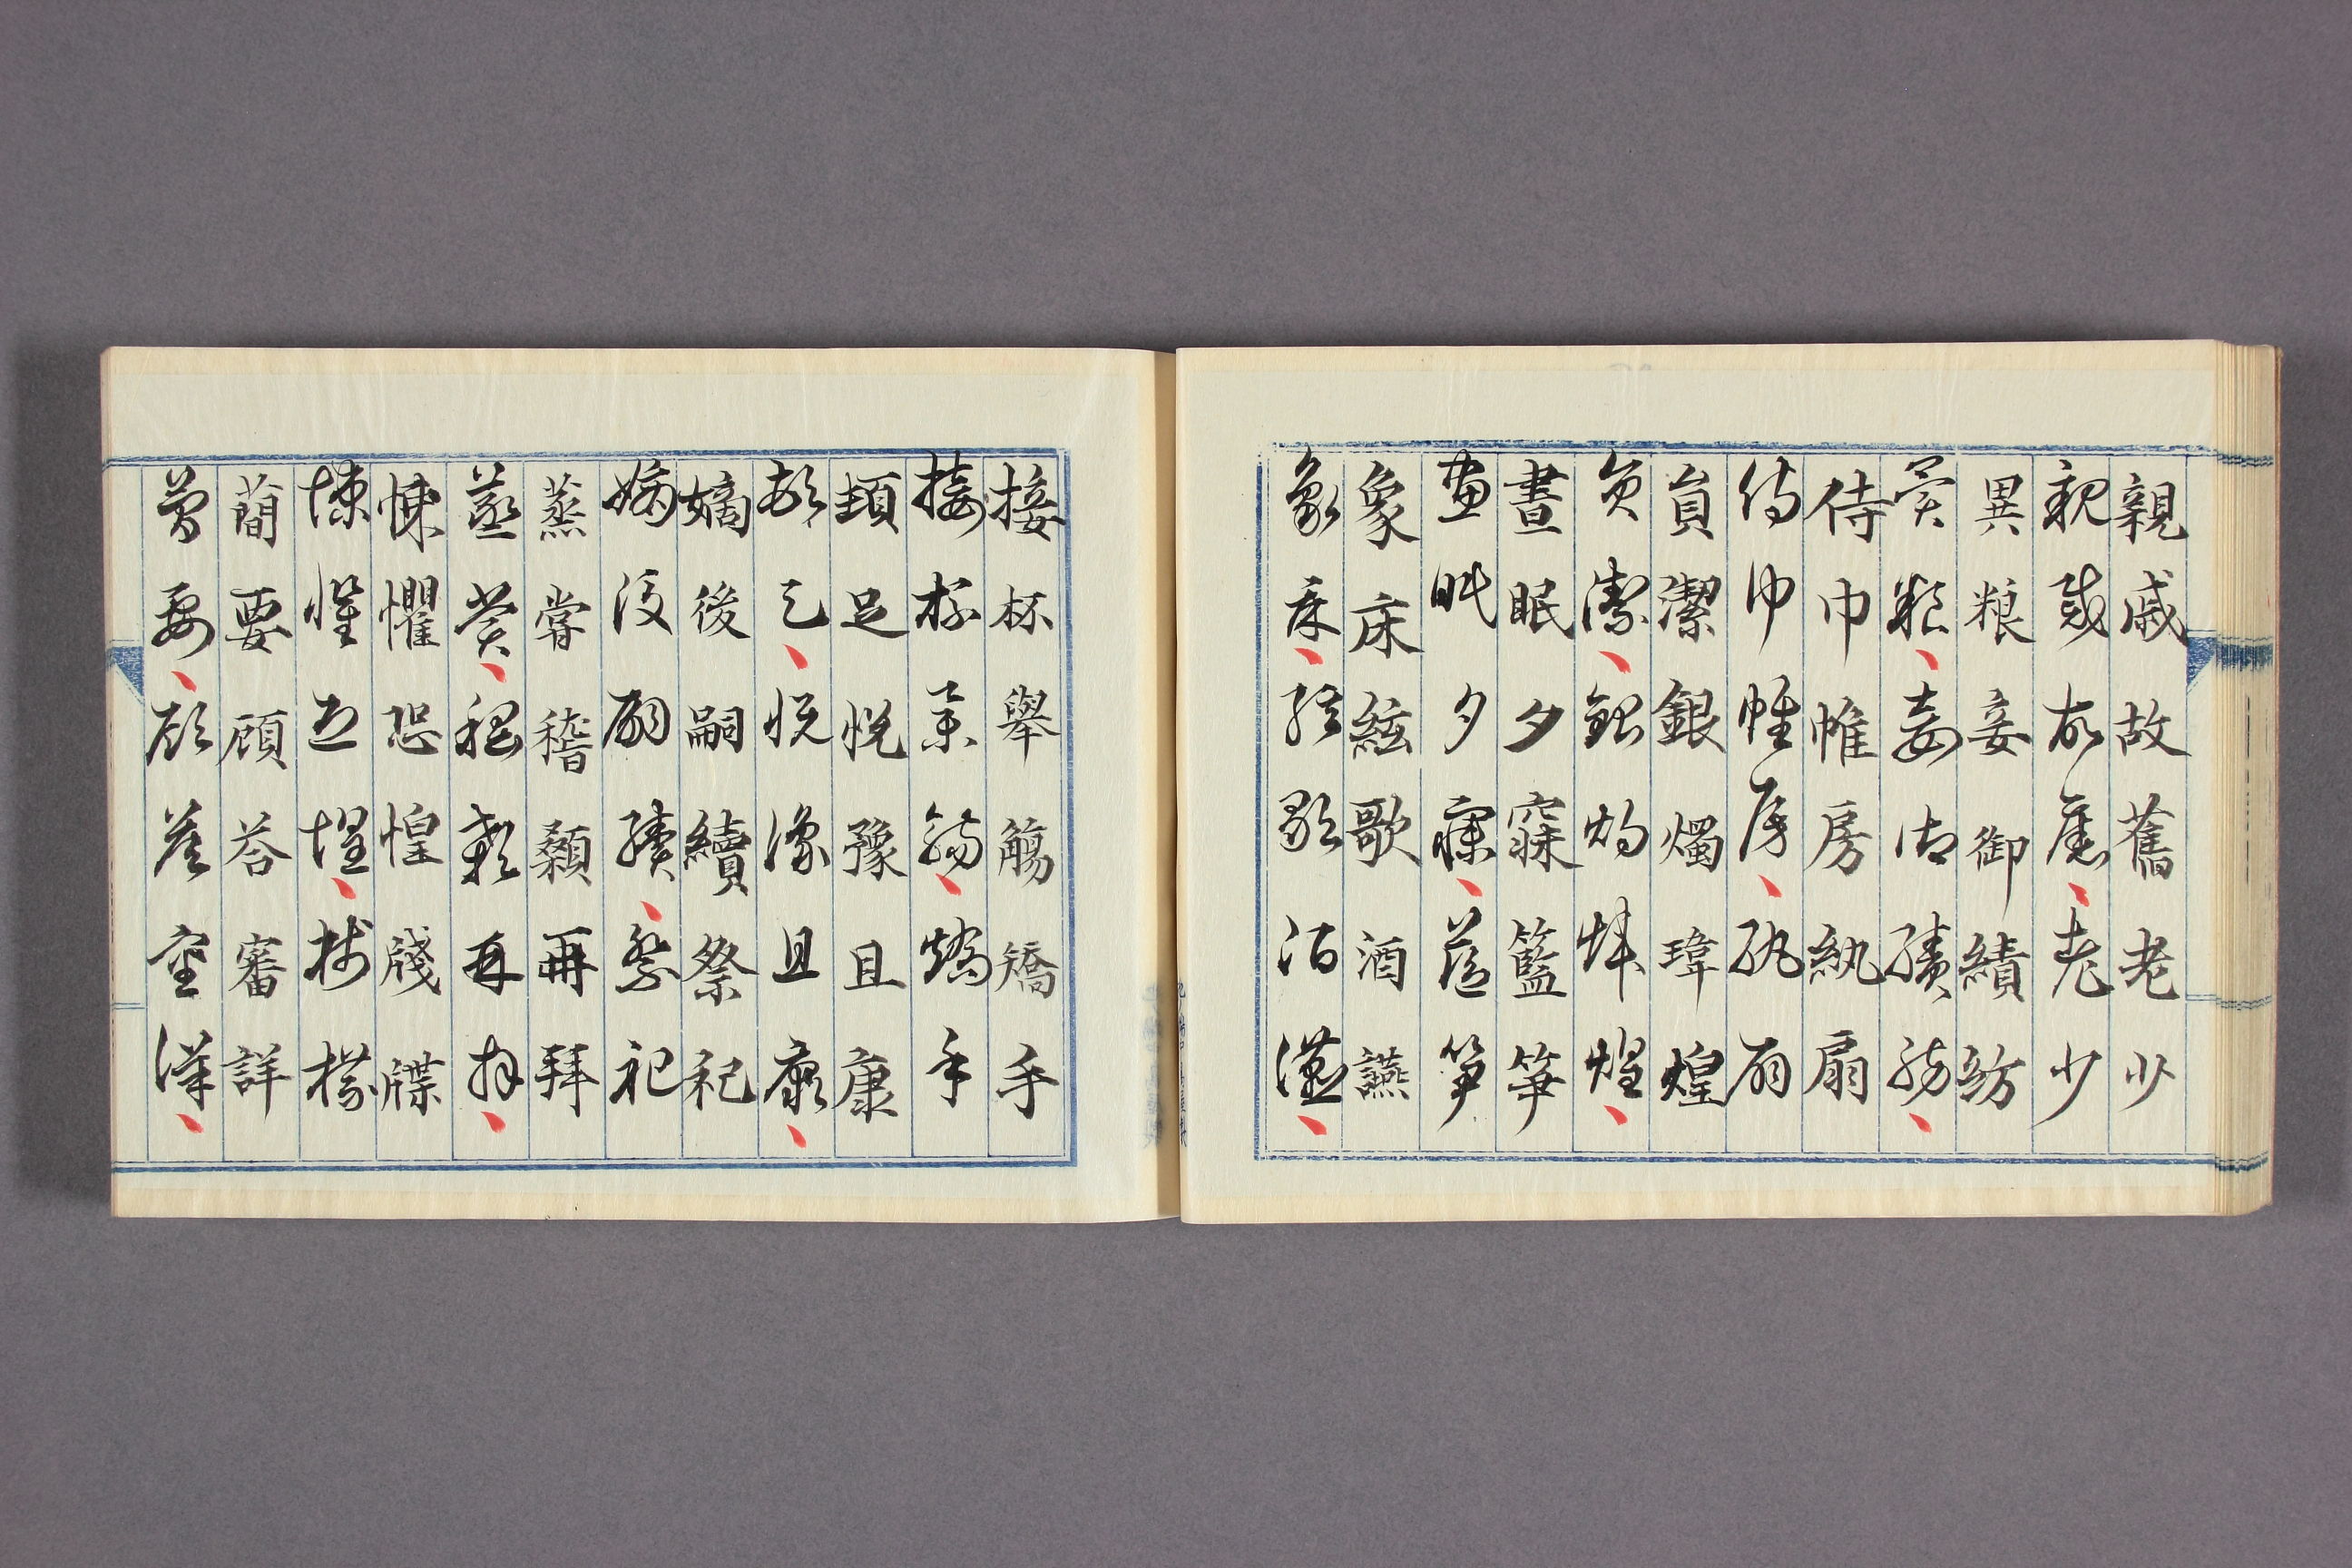 親戚故舊老少
親戚故舊老少
異粮妾御績紡
異粮妾御績紡
侍巾帷房紈扇
侍巾帷房紈扇
員潔銀燭瑋煌
員潔銀燭煒煌
晝眠夕寐籃笋
晝眠夕寐藍笋
象床絃歌酒讌
象床絃歌酒讌
接杯舉觴矯手
接杯舉觴矯手
頓足悅豫且康
頓足悅豫且康
嫡後嗣續祭祀
嫡後嗣續祭祀
蒸嘗稽顙再拜
蒸嘗稽顙再拜
悚懼恐惶牋牒
悚懼恐惶牋牒
蕳要顧荅審詳
簡要顧荅審詳